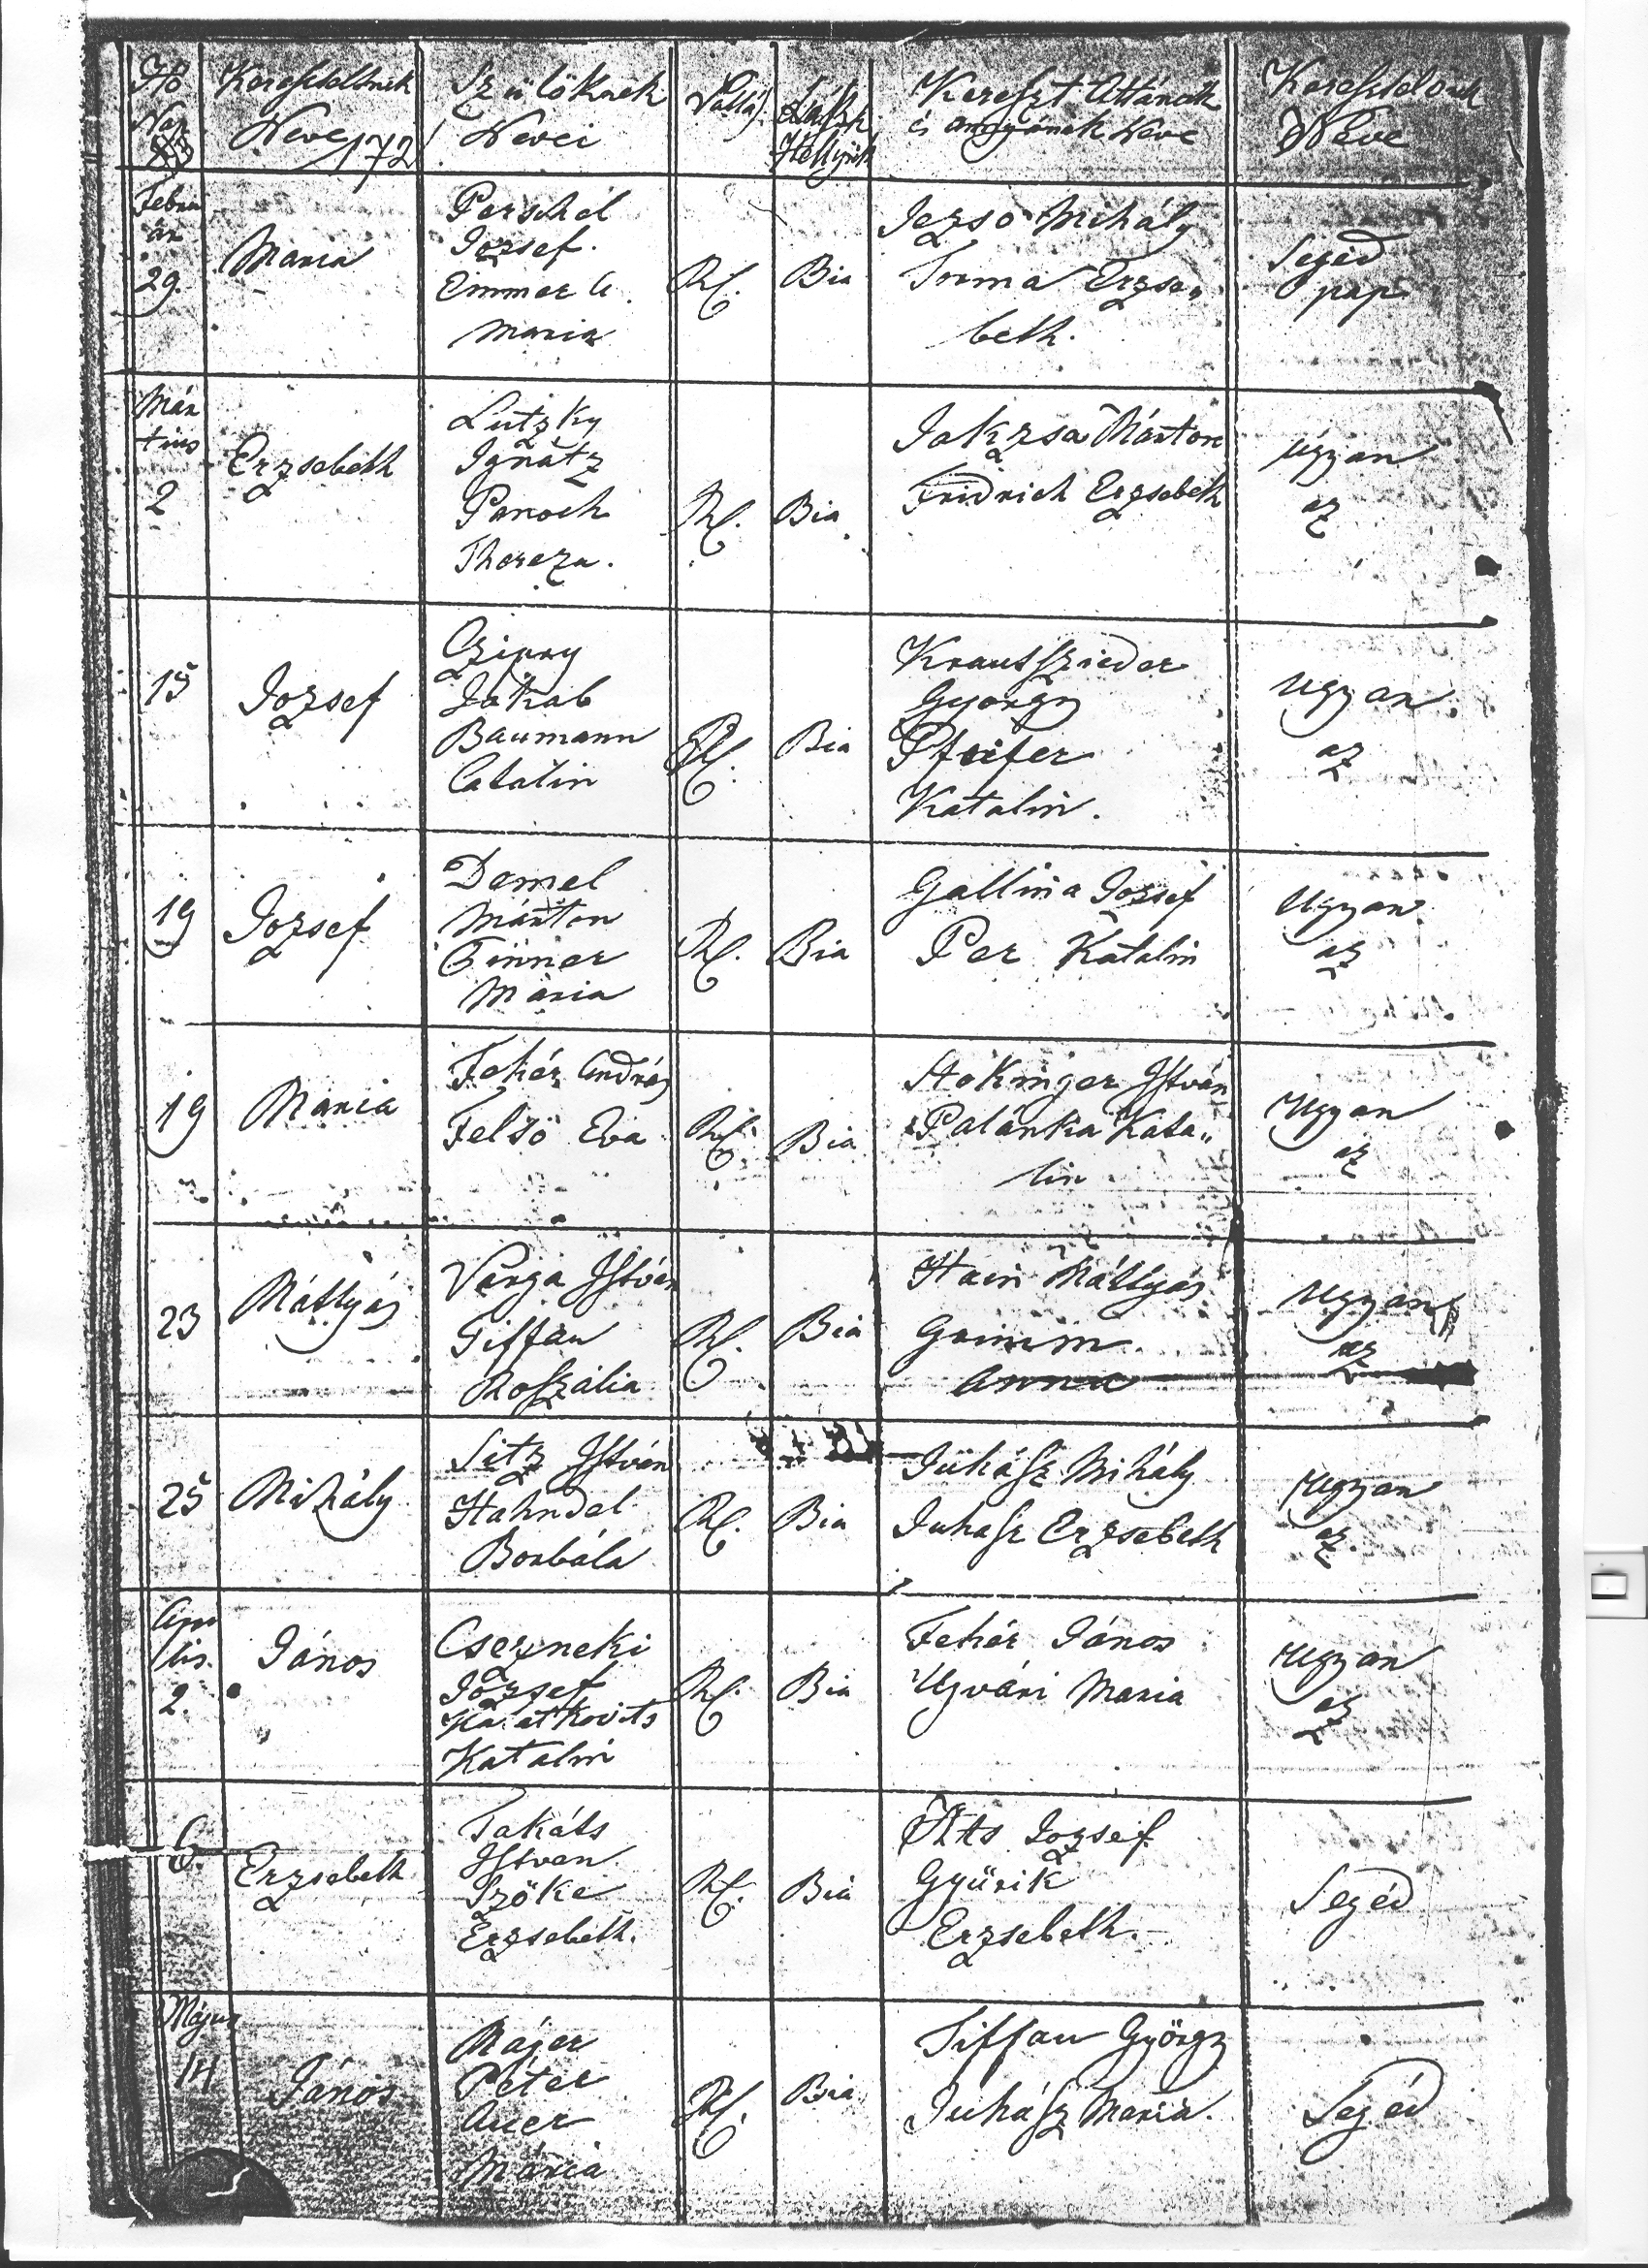 Keresteltnek
Neve 172
Szülöknek
Nevei
Vallás
Lakh
Hellyök
Kereszt Attának
és annyának Neve
Keresztelönek
Neve
Febru
ár
29.
Maria
Perschel
Iozsef.
Emmer
Maria
Rc.
Bia
Jezso Mihály
Torma Erzse„
beth.
Segéd
pap
Már
tius
2
Erzsebeth
Lutzky
Ignátz
Panoch
Thereza.
Rc.
Bia
Jakzsa Márton
Fridrich Erzsebeth
Ugyan
az
15
Iozsef
Jakab
Baumann
Catalin
Rc.
Bia
Krautszieder
György
Pfeifer
Katalin.
Ugyan
az
19
Iozsef
Demel
Márton
Finner
Mária
Rc.
Bia
Gallina Iozsef
Per Katalin
Ugyan
az
19
Maria
Fehér András
Felsö Eva
Rc.
Bia
Stokinger István
Palánka Kata„
lin
Ugyan
az
23
Máttyás
Varga István
Tiffan
Roszália
Rc.
Bia
Hain Máttyás
Grimm
Anna
Ugyan
az
25
Mihály
Sitz István
Hahndel
Borbála
Rc.
Bia
Juhász Mihály
Juhasz Erzsebeth
Ugyan
az.
Apri
lis.
2.
János
Cserneki
József
Katalin
Rc.
Bia
Fehér János
Ujvári Maria
Ugyan
az
6.
Erzsebeth
Takáts
Istvan.
Szöke
Erzsebeth.
Rc.
Bia
Áts Iozsef
Gyürik
Erzsebeth.
Segéd
Május
14
János
Májer
Péter
Auer
Mária
Rc.
Bia
Tiffan György
Juhász Maria.
Segéd